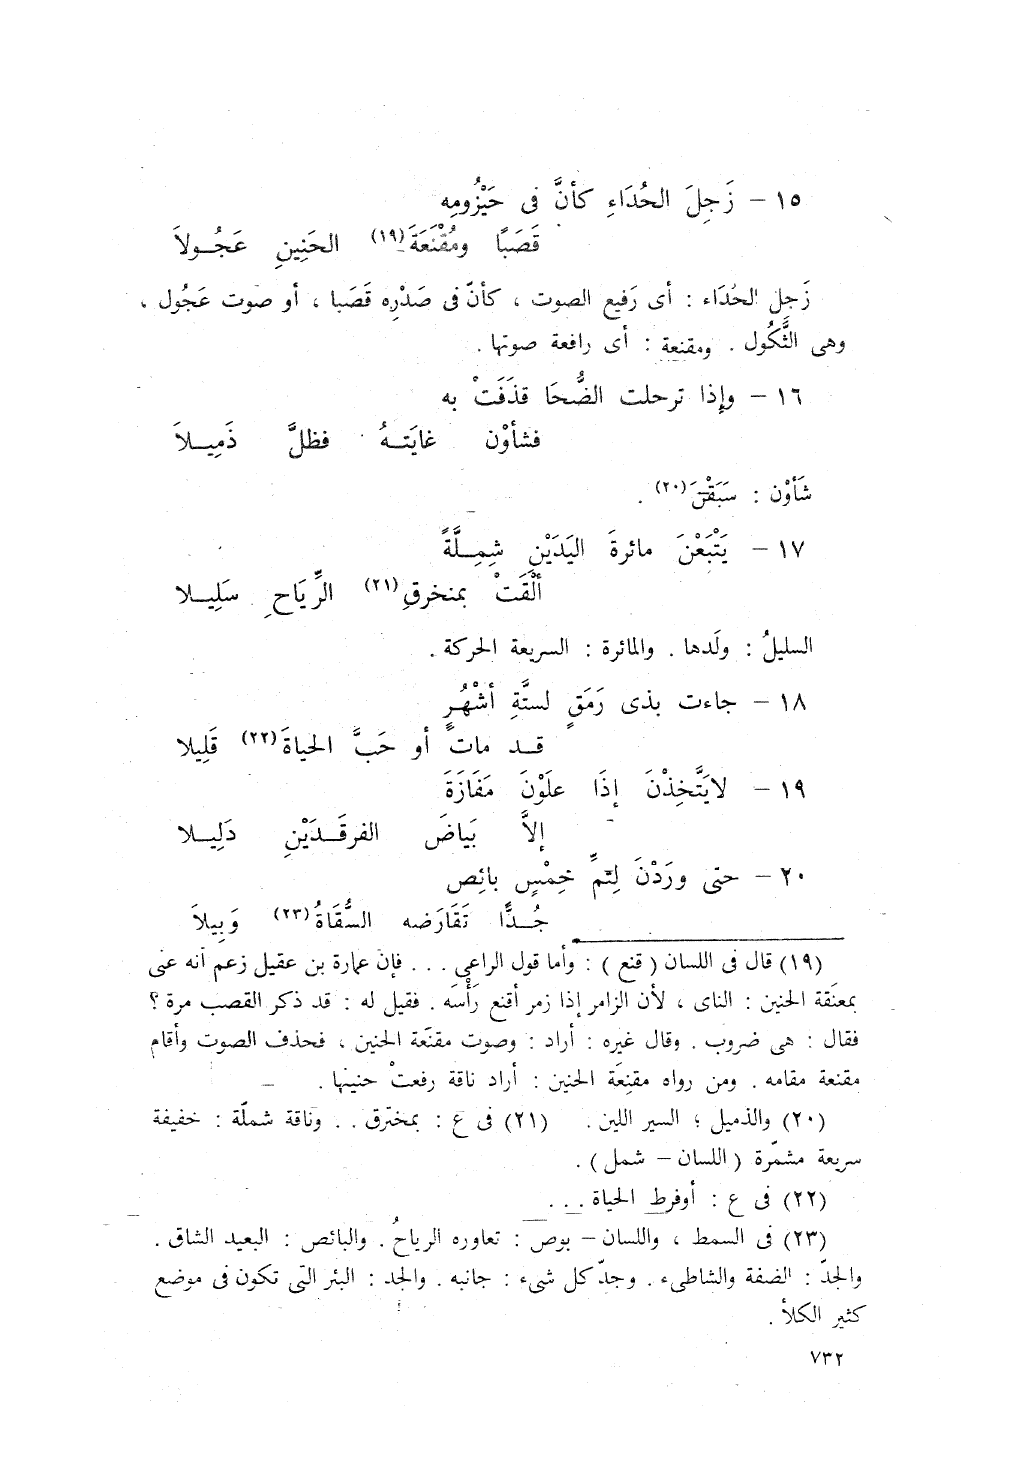 ١٥ – زَجِلَ الحُدَاءِ كأنَّ فى حَيْزُومِه
قَصَبًا ومُقْنَعَةَ(١٩) الحَنِينِ عَجُولاَ
زَجِل الحُدَاء : أى رَفيع الصوت ، كأنّ فى صَدْرِه قَصَبا ، أو صوت عَجُول ،
وهى الثَّكُول . ومقنعة : أى رافعة صوتها .
١٦ – وإِذا ترحلت الضُّحَا قذَفَتْ به
فشأوْن غايَتهُ فظلَّ ذَمِيلاَ
شَأوْن : سَبَقْنَ(٢٠) .
١٧ – يَتْبَعْنَ مائرةَ اليَدَيْنِ شِمِلَّةً
ألْقَتْ بمنخرقِ(٢١) الرِّيَاحِ سَلِيلا
السليلُ : ولَدها . والمائرة : السريعة الحركة .
١٨ – جاءت بذى رَمَقٍ لستَّةِ أشْهُرٍ
قد ماتَ أو حَبَّ الحياةَ(٢٢) قَلِيلا
١٩ – لايَتَّخِذْنَ إذَا علَوْنَ مَفَازَةَ
إلاَّ بَياضَ الفرقَدَيْنِ دَلِيلا
٢٠ – حتى ورَدْنَ لِتمِّ خِمْسٍ بائِص
جُدًّا تَقَارَضه السُّقَاةُ(٢٣) وَبِيلاَ
(١٩) قال فى اللسان ( قنع ) : وأما قول الراعى . . . فإن عمارة بن عقيل زعم أنه عنى
بمعنَقة الحنين : الناى ، لأن الزامر إذا زمر أقنع رَأْسَه . فقيل له : قد ذكر القصب مرة ؟
فقال : هى ضروب . وقال غيره : أراد : وصوت مقنَعة الحنين ، فحذف الصوت وأقام
مقنعة مقامه . ومن رواه مقنِعَة الحنين : أراد ناقة رفعتْ حنينها .
(٢٠) والذميل ؛ السير اللين . (٢١) فى ع : بمخترق . . وناقة شملّة : خفيفة
سريعة مشمّرة ( اللسان – شمل ) .
(٢٢) فى ع : أوفرط الحياة . . .
(٢٣) فى السمط ، واللسان – بوص : تعاوره الرياحُ . والبائص : البعيد الشاق .
والجدّ : الضفة والشاطىء . وجدّ كل شىء : جانبه . والجد : البئر التى تكون فى موضع
كثير الكلأ .
٧٣٢